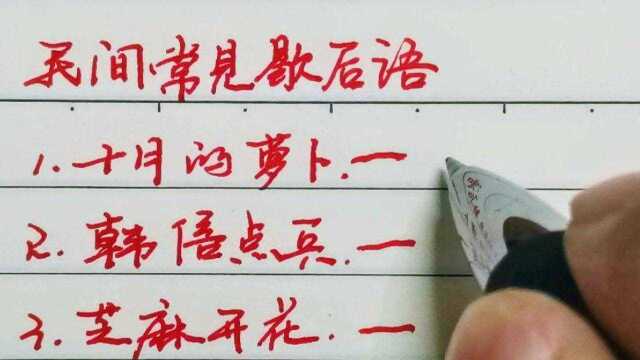 民间常见歇后语
1.十月的萝卜.一
2.韩信点兵.一
3.芝麻开花.一